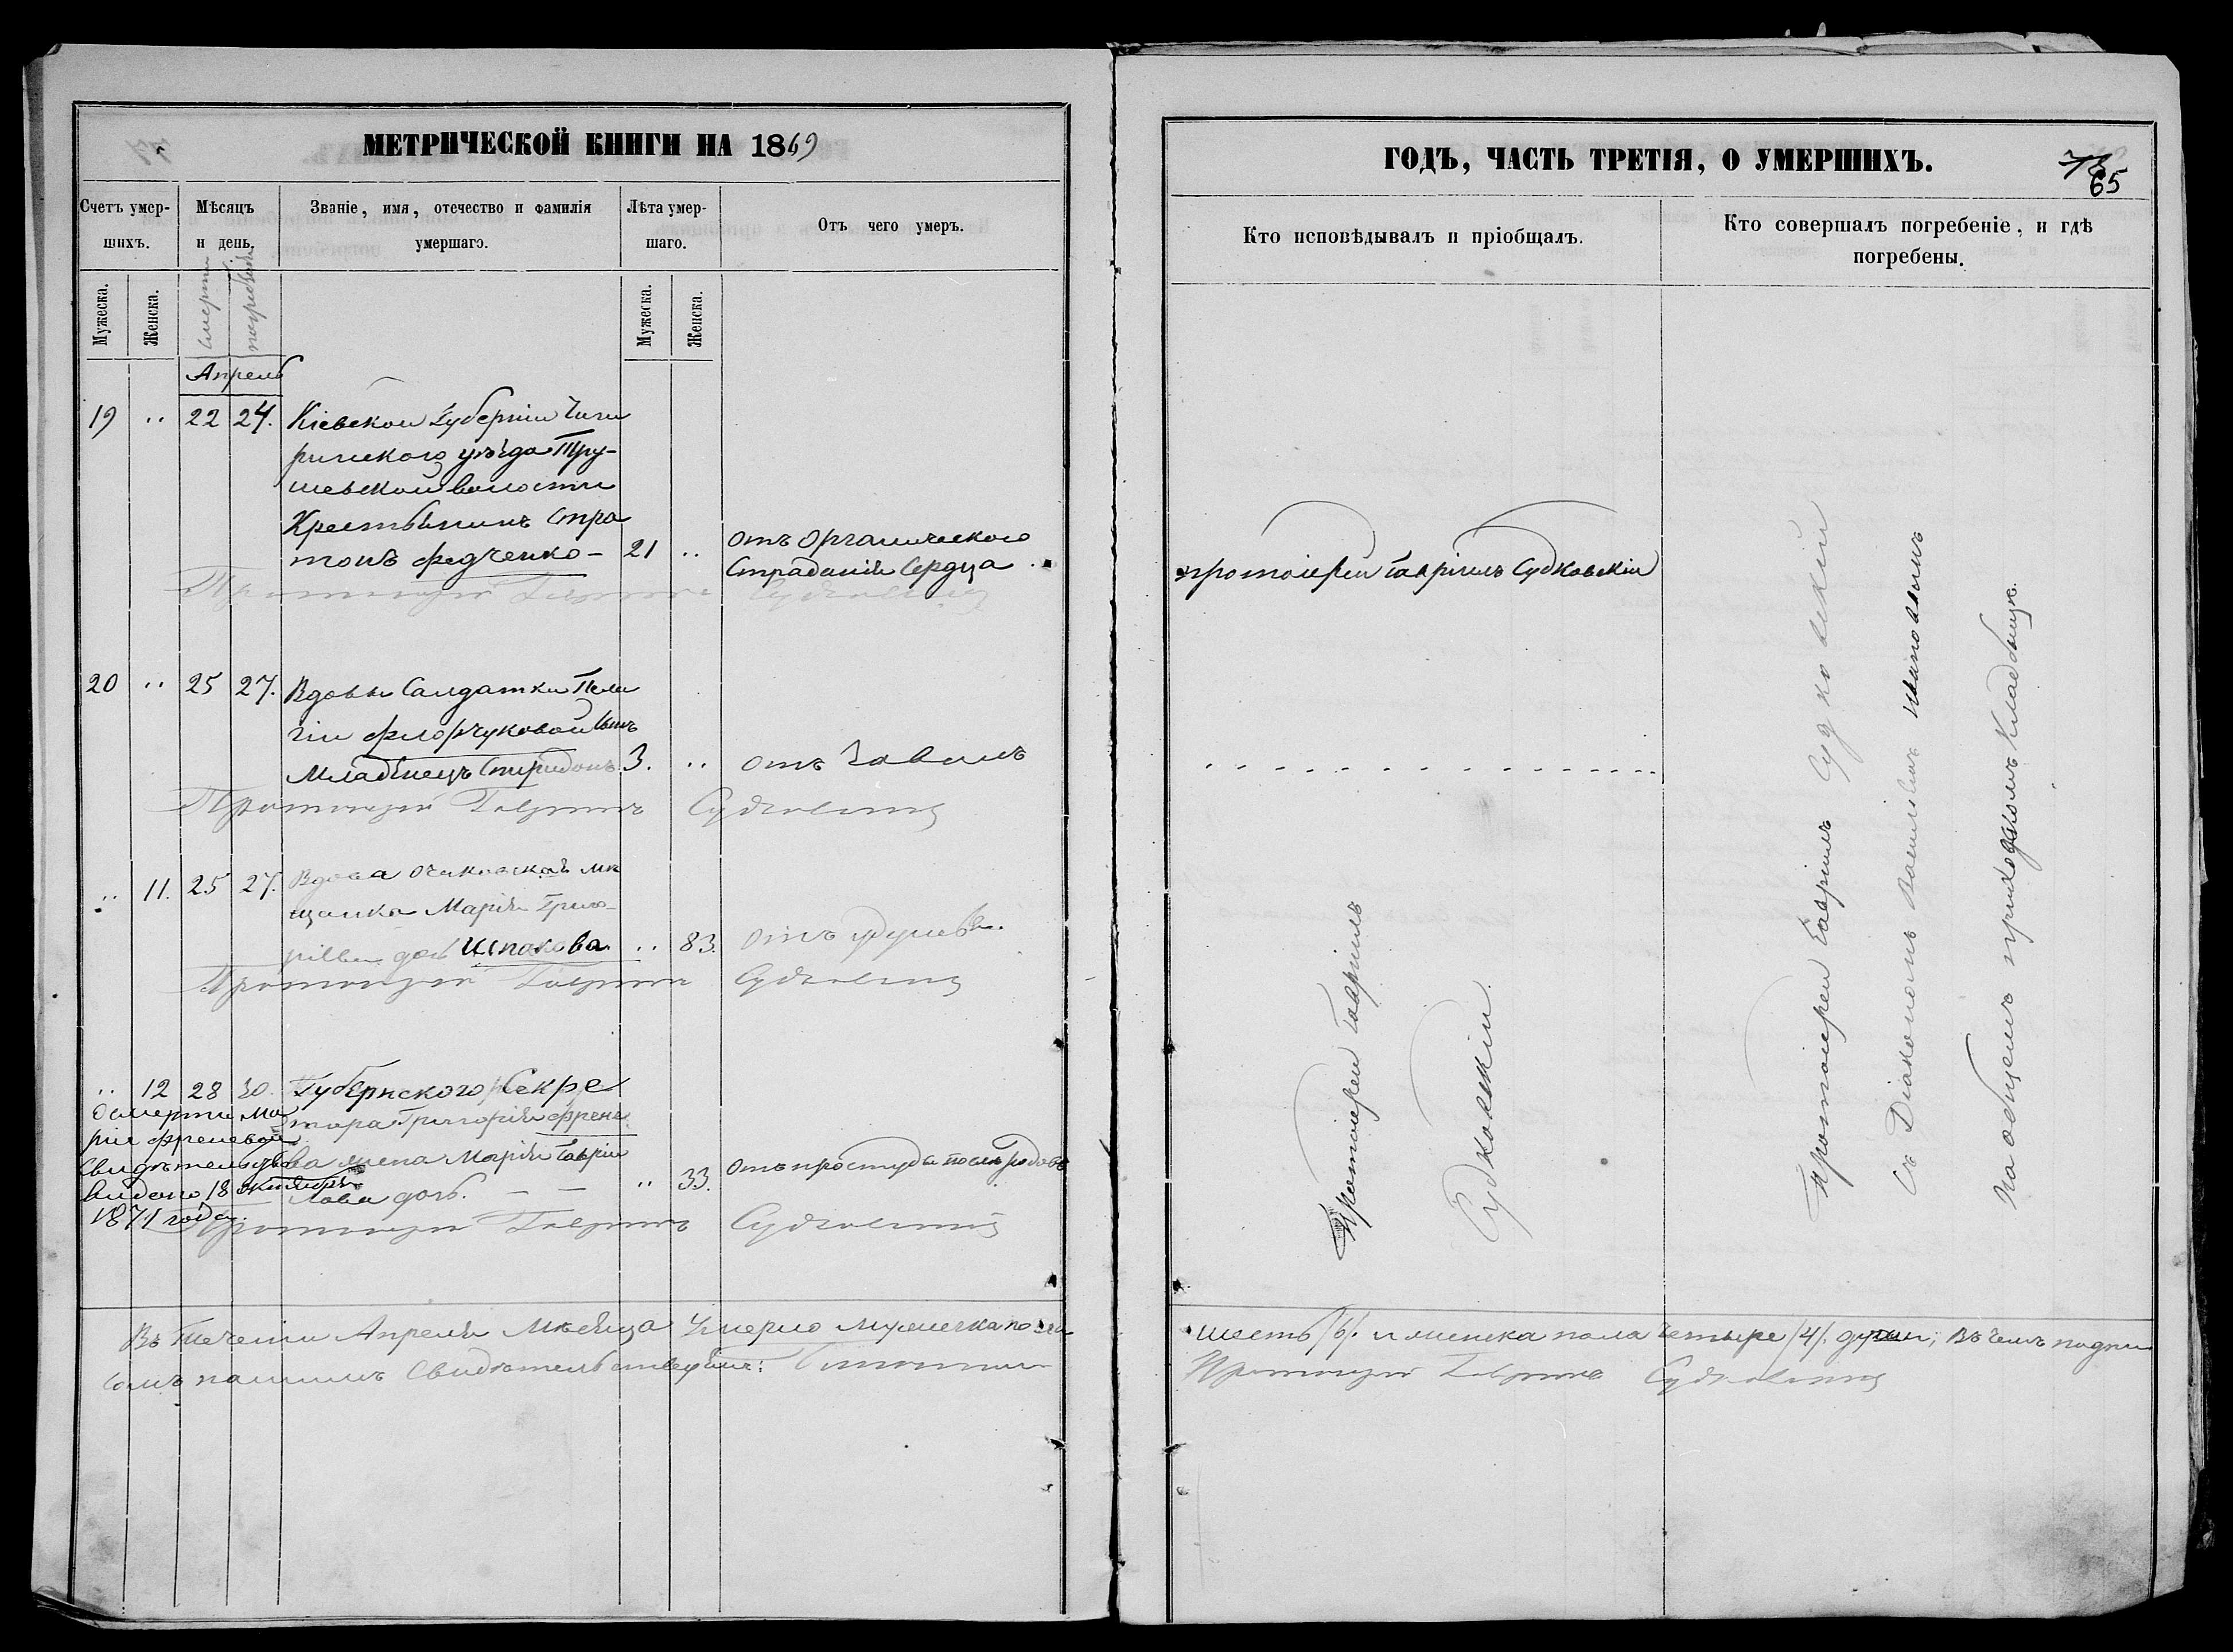 МЕТРИЧЕСКОЙ КНИГИ НА 1869
Счетъ умер-
шихъ.
Мѣсяцъ
и день.
Званіе, имя, отечество и фамилія
умершаго.
Лѣта умер-
шаго.
Отъ чего умеръ.
Мужеска.
Женска.
смерти
погребенія
Мужеска.
Женска.
Апрель
19 .. 22 24. Кіевской Губерніи Чиги
ринского уѣзда Тру-
шевской волости
Крестьянинъ Стра
тонъ Федченко – 21 .. отъ Органического
Страданія Сердца
Протоіерей Гавріилъ Судковскій
20 .. 25 27. Вдовы Салдатки Пела
гіи Сынъ
Младенецъ Спиридонъ. 3. .. отъ
Протоіерей Гавріилъ Судковскій
.. 11. 25 27. Вдова Очаковская мѣ
щанка Марія Григо-
ріева дочь Шпакова. .. 83.
Протоіерей Гавріилъ Судковскій
.. 12 28 30. Губернского Секре
тора Григорія Френе
ва жена Марія Гаврiи
лова дочь. – – .. 33. отъ простуды послѣ родовъ
О смерти Ма
ріи Френевой
Свидѣтельство
видано 18 октября
1871 года.
Протоіерей Гавріилъ Судковскій
Въ теченіи Апреля Мѣсяца Умерло мужеска пола
симъ нашимъ Свидѣтельствуемъ:
ГОДЪ, ЧАСТЬ ТРЕТІЯ, О УМЕРШИХЪ.
65
Кто исповѣдывалъ и пріобщалъ.
Кто совершалъ погребеніе, и гдѣ
погребены.
протоіерей Гавріилъ Судковскій
Протоіерей Гавріилъ
Судковскій
Протоіерей Гавріилъ Судковскій
съ Діакономъ Василіемъ
на общемъ приходскомъ кладбищѣ.
шесть /6/. и женска пола четыре /4/. души; въ чемъ подпи
Протоіерей Гавріилъ Судковскій